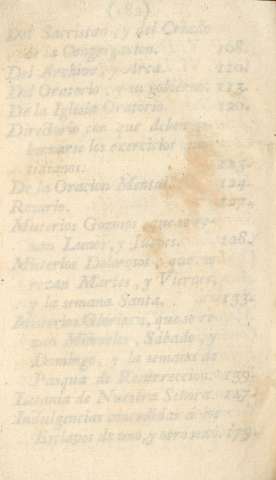 Del Sacristan, y del Criado
de la Congregacion. 108.
Del Archivo, y Arca. 110.
Del Oratorio, y su gobierno. 113.
De la Iglesia Oratorio. 120.
Directorio con que deben
los exercicios
123.
De la Oracion Mental. 124.
Rosario. 127.
Misterios Gozosos, que se re-
zan Lunes, y Jueves. 128.
Misterios Dolorosos, que se
rezan Martes, y Viernes,
y la semana Santa. 133.
Misterios Gloriosos, que se re-
zan Miercoles, Sabado, y
Domingo, y la semana de
Pasqua de Resurreccion. 139.
Letania de Nuestra Señora. 147.
Indulgencias concedidas a los
Esclavos de uno, y otro sexô. 179.